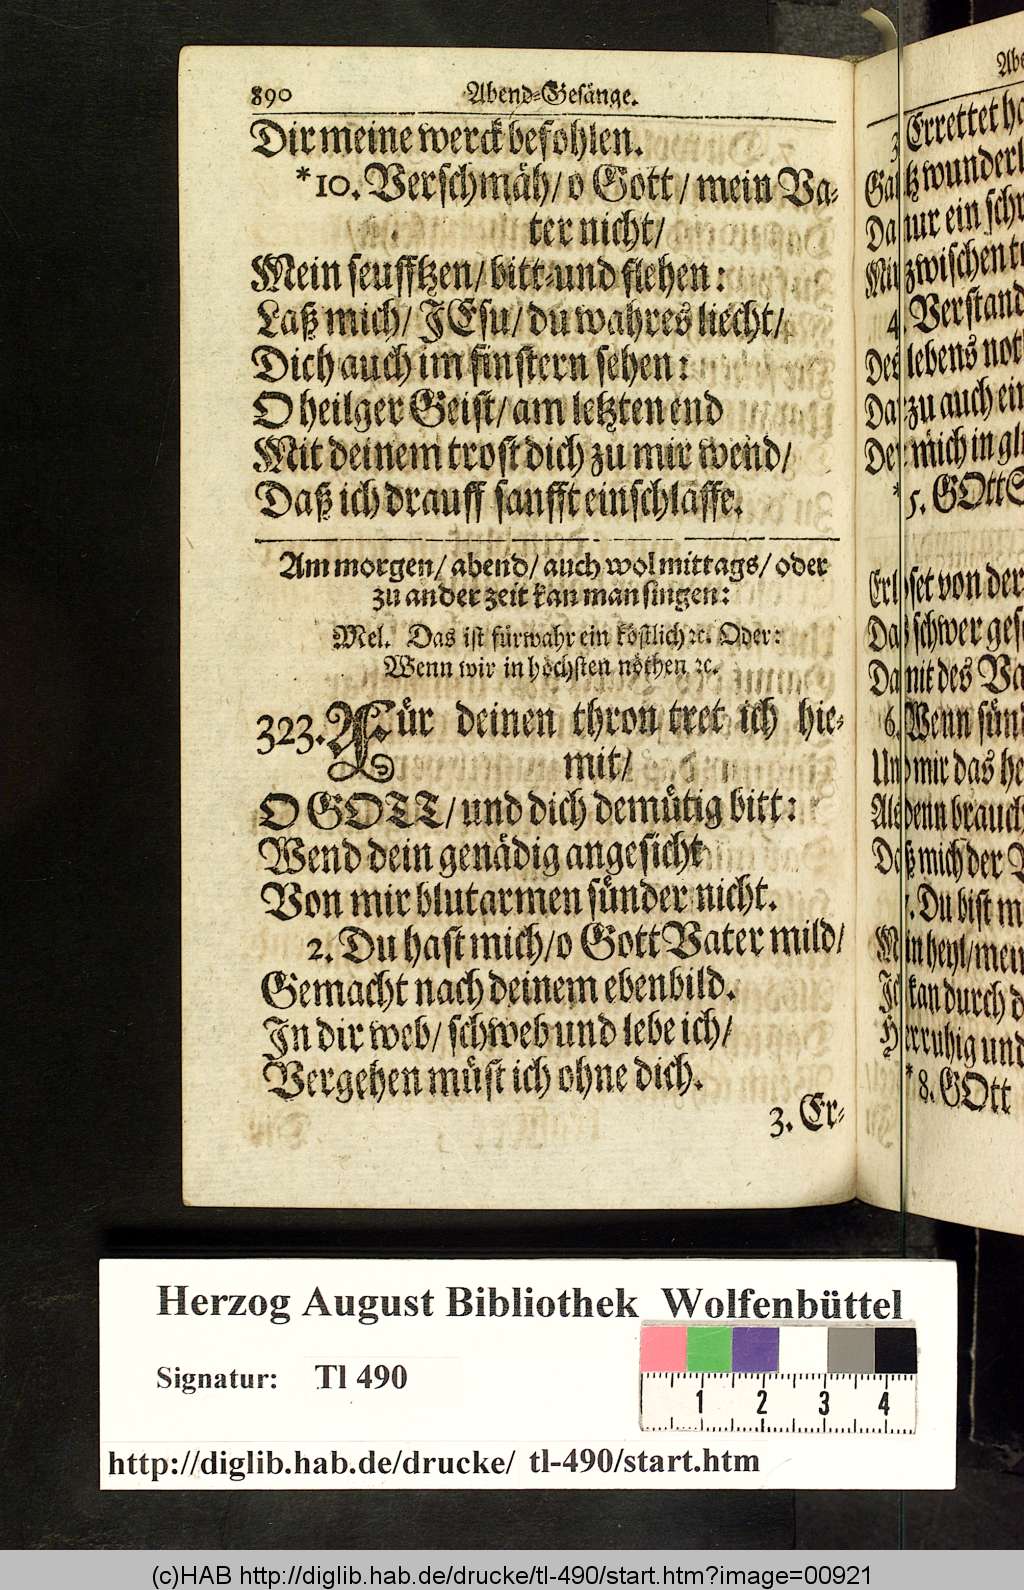 890 Abend-Gesänge.
Dir meine werck befohlen.
*10. Verschmäh/ o Gott/ mein Va-
ter nicht/
Mein seufftzen/ bitt-und flehen:
Laß mich/ JEsu/ du wahres liecht/
Dich auch im finstern sehen:
O heilger Geist/ am letzten end
Mit deinem trost dich zu mir wend/
Daß ich drauff sanfft einschlaffe.
Am morgen/ abend/ auch wol mittags/ oder
zu ander zeit kan man singen:
Mel. Das ist fürwahr ein köstlich ꝛc. Oder:
Wenn wir in höchsten nöthen ꝛc.
323. Für deinen thron tret ich hie-
mit/
O GOTT/ und dich demütig bitt:
Wend dein genädig angesicht
Von mir blutarmen sünder nicht.
2. Du hast mich/ o Gott Vater mild/
Gemacht nach deinem ebenbild.
In dir web/ schweb und lebe ich/
Vergehen müst ich ohne dich.
3. Er-
Errettet
wunderl
nur ein
zwischen
4. Verstand
lebens
zu auch
mich in
5. GOtt
von der
schwer
mit des
6. Wenn
mir das
denn
mich der
7. Du bist
kan durch
ruhig und
*8. GOtt
Herzog August Bibliothek Wolfenbüttel
Signatur: Tl 490
1 2 3 4
http://diglib.hab.de/drucke/ tl-490/start.htm
(c)HAB http://diglib.hab.de/drucke/tl-490/start.htm?image=00921